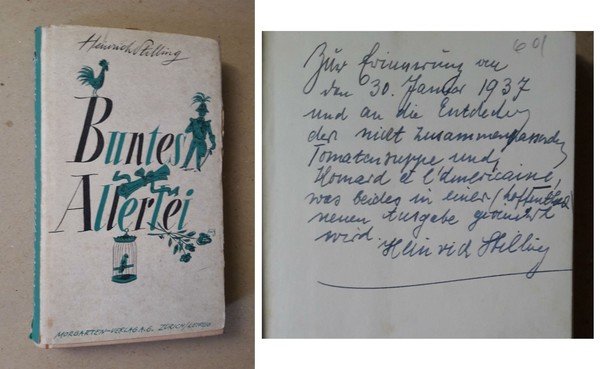 Heinrich Stilling
Buntes
Allerlei
MORGARTEN-VERLAG A.G. ZÜRICH/LEIPZIG
Zur Erinnerung an
den 30. Januar 1937
und an die Entdeckung
der nicht zusammenpassenden
Tomatensuppe und
Homard à l'Américaine,
was beides in einer (hoffentlich)
neuen Ausgabe geändert
wird.
Heinrich Stilling